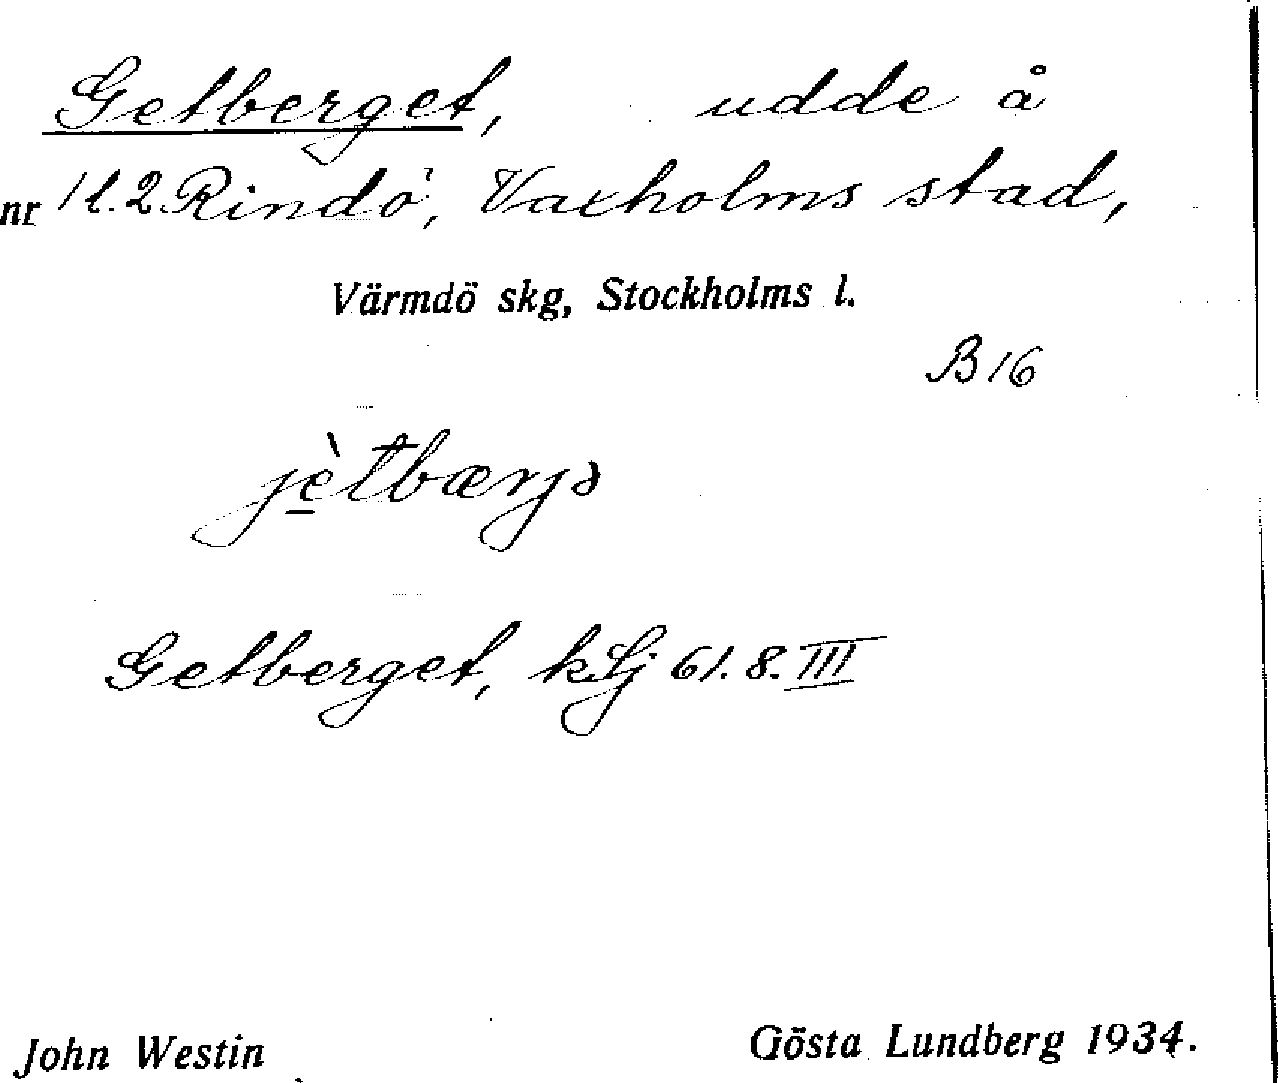 Getberget, udde å
nr 1 l. 2. Rindö, Vaxholms stad,
Värmdö skg, Stockholms l.
B 16
jè̱tbærjə
Getberget, kSj 61. 8. III
John Westin Gösta Lundberg 1934.